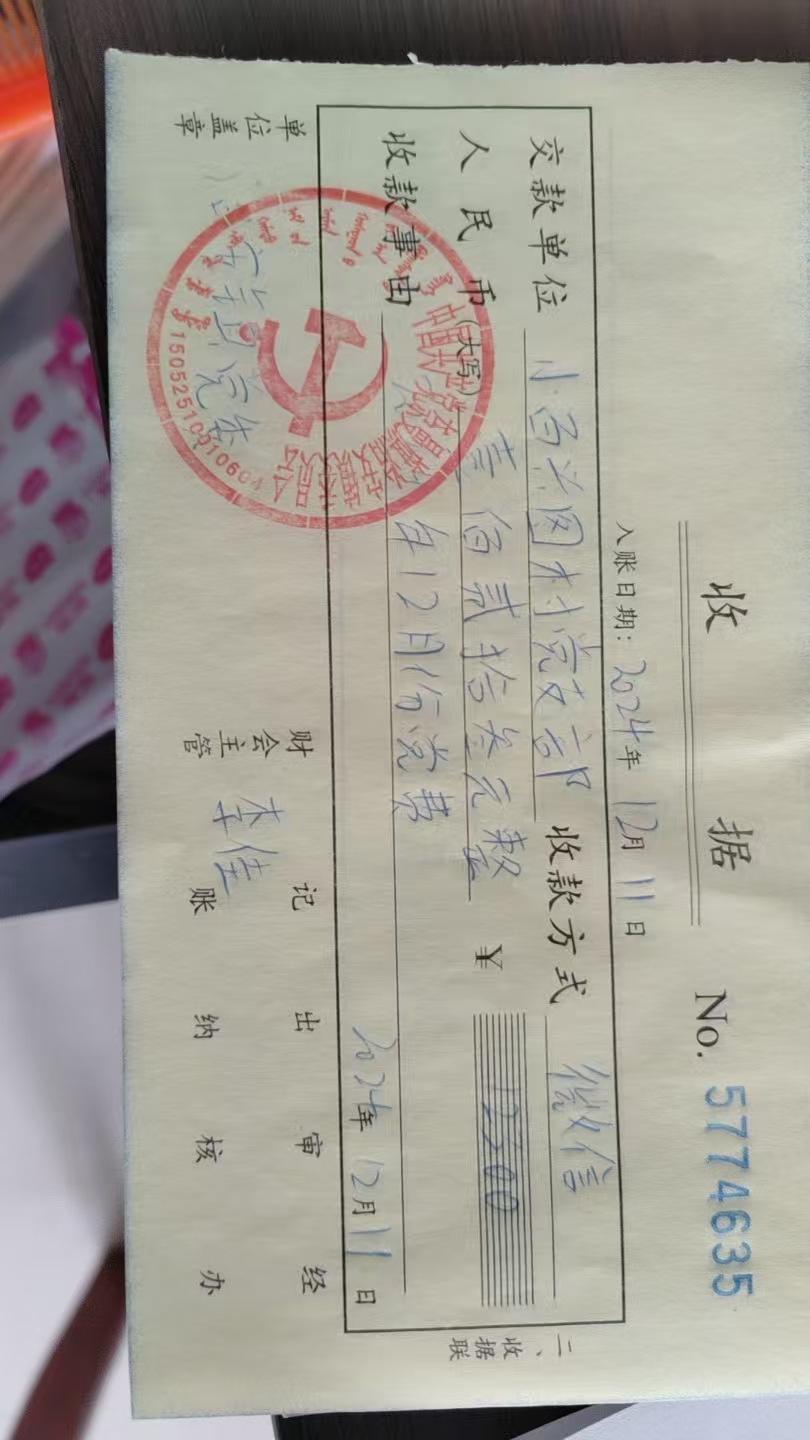 收 据
No. 5774635
入账日期: 2024年 12月 11日
交款单位 小百兴图村党支部 收款方式 微信
人民币(大写) 壹佰贰拾叁元整 ¥ 12300
收款事由 年12月份党费
2024年 12月 11日
二、收据联
单位盖章 财会主管 李佳 记账 出纳 审核 经办
中国共产党
15052510010604